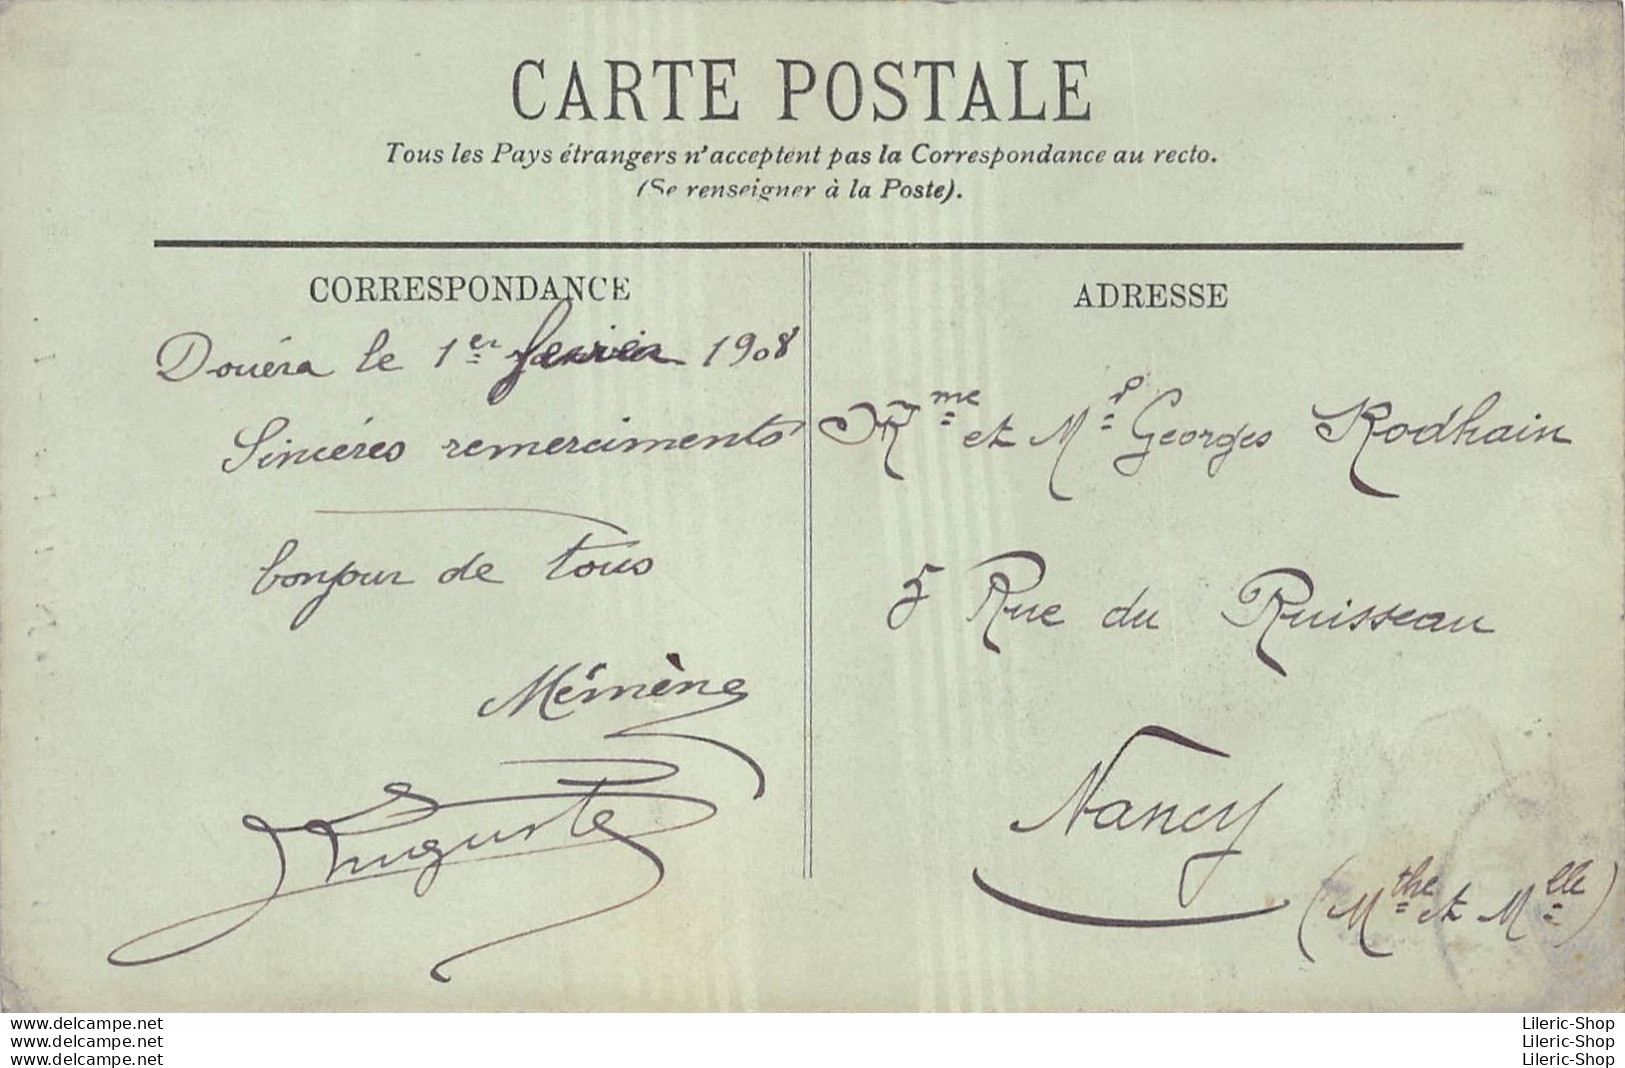 CARTE POSTALE
Tous les Pays étrangers n'acceptent pas la Correspondance au recto.
(Se renseigner à la Poste).
CORRESPONDANCE
Douéra le 1er fevrier 1908
Sincéres remerciments
bonjour de tous
Mémène
Auguste
ADRESSE
Mme et Mr Georges Rodhain
5 Rue du Ruisseau
Nancy
(Mthe et Mlle)
www.delcampe.net
www.delcampe.net
www.delcampe.net
Lileric-Shop
Lileric-Shop
Lileric-Shop